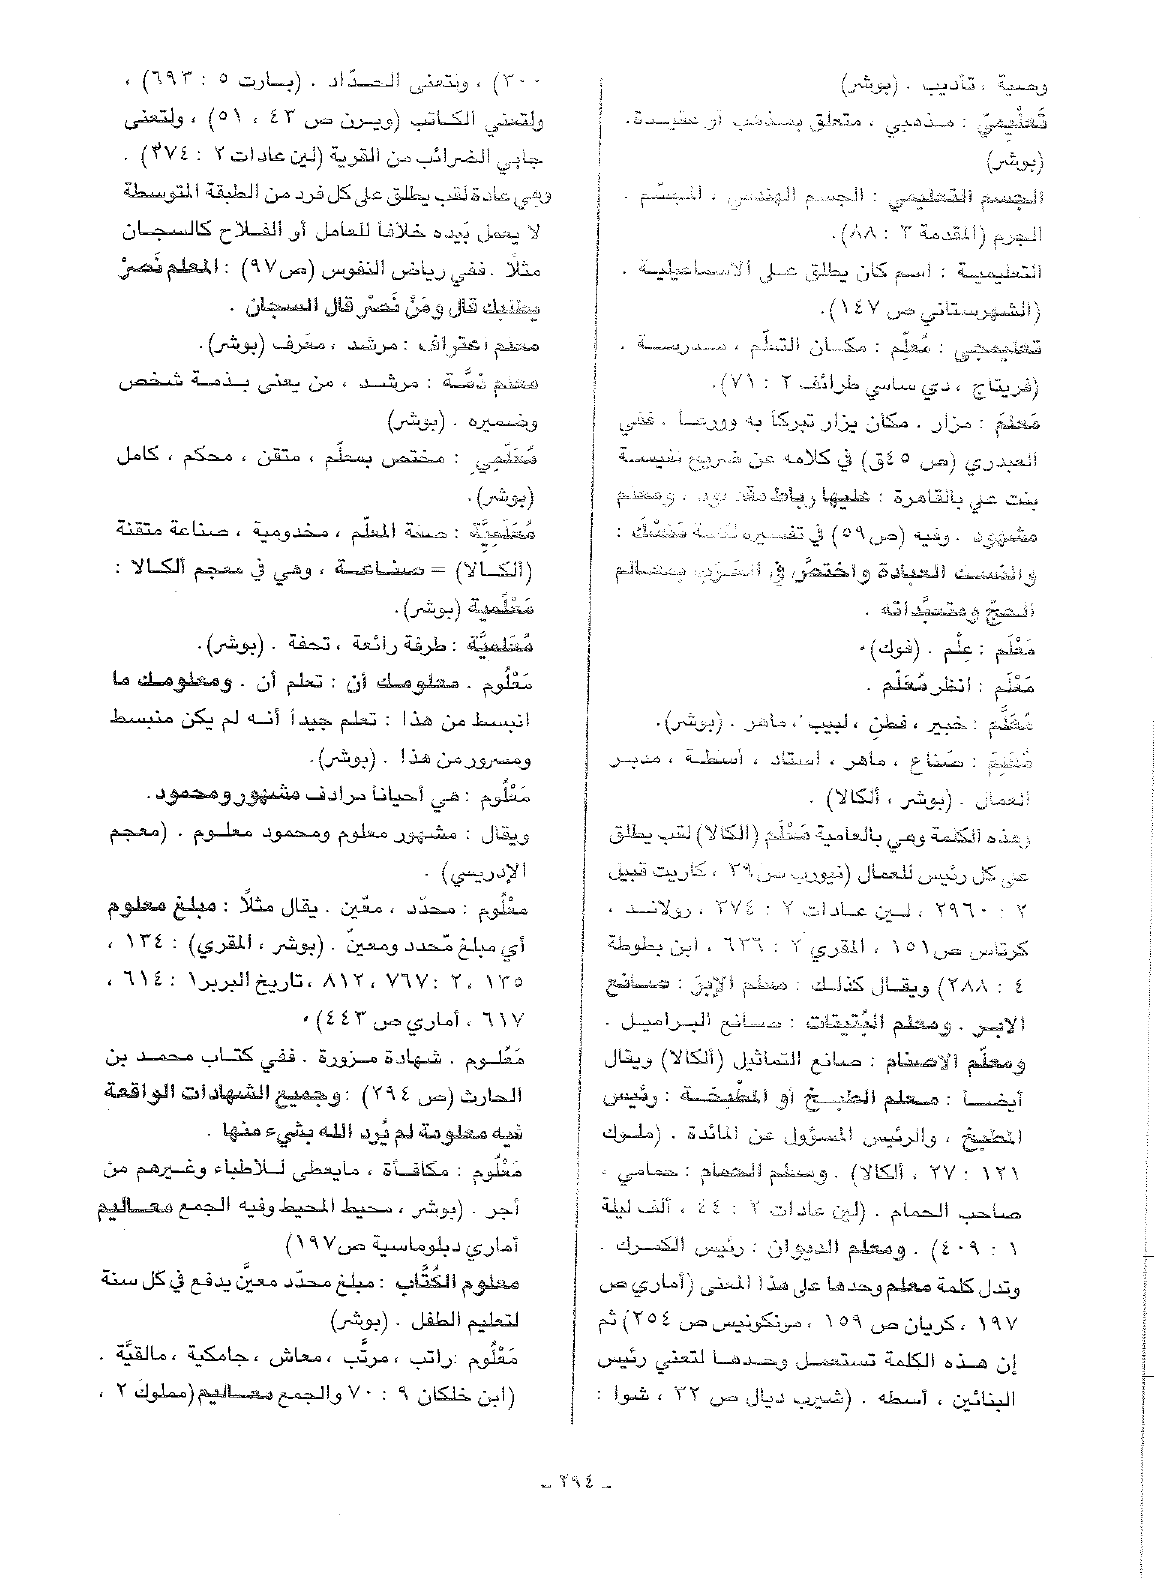 وصية ، تأديب . (بوشر)
تَعْلِيْمِيّ : مذهبي ، متعلق بمذهب أو عقيدة.
(بوشر)
الجسم التعليمي : الجسم الهندسي ، المجسّم .
الجرم (المقدمة ٣ : ٨٨).
التعليمية : اسم كان يطلق على الاسماعيلية .
(الشهرستاني ص ١٤٧).
تعليمجي : مُعلِّم : مكان التعلّم ، مدرسة .
(فريتاج ، دي ساسي طرائف ٢ : ٧١).
مَعلَم : مزار . مكان يزار تبركاً به وورعا . ففي
العبدري (ص ٤٥ق) في كلامه عن ضريح نفيسة
بنت علي بالقاهرة : عليها رباط مقصود ، ومعلم
مشهود . وفيه (ص ٥٩) في تفسيره لكلمة مَنْسَك :
والنسك العبادة واختصَّ في العُرْف بمعالم
الحجّ ومتعبَّداته .
مَعْلَم : عِلْم . (فوك)٠
مَعْلَم : أنظر مُعَلَّم .
مُعَلَّم : خبير ، فطن ، لبيب ، ماهر . (بوشر).
مُعَلِّم : صَنّاع ، ماهر ، استاد ، أسطة ، مدير
العمال . (بوشر ، ألكالا) .
وهذه الكلمة وهي بالعامية مَعْلَم (الكالا) لقب يطلق
على كل رئيس للعمال (نيورب ص ٣٩ ، كاريت قبيل
٢ : ٢٩٦٠ ، لين عادات ٢ : ٣٧٤ ، رولاند ،
كرتاس ص ١٥١ ، المقري ٢ : ٦٣٦ ، ابن بطوطة
٤ : ٢٨٨) ويقال كذلك : معلم الإبَر : صانع
الابر . ومعلم البُتِيات : صانع البراميل .
ومعلّم الاصنام : صانع التماثيل (ألكالا) ويقال
أيضا : معلم الطبخ أو المطْبخة : رئيس
المطبخ ، والرئيس المسؤول عن المائدة . (ملوك
١٢١ : ٢٧ ، ألكالا) . ومعلم الحمام : حمامي ،
صاحب الحمام . (لين عادات ٢ : ٤٤ ، ألف ليلة
١ : ٤٠٩) . ومعلم الديوان : رئيس الكمرك .
وتدل كلمة معلم وحدها على هذا المعنى (أماري ص
١٩٧ ، كريان ص ١٥٩ ، مونكونيس ص ٢٥٤) ثم
إن هذه الكلمة تستعمل وحدها لتعني رئيس
البنائين ، أسطه . (شيرب ديال ص ٢٢ ، شوا :
٣٠٠) ، وتعني الحدّاد . (بارت ٥ : ٦٩٣) ،
ولتعني الكاتب (ويرن ص ٤٣ ، ٥١) ، ولتعني
جابي الضرائب من القرية (لين عادات ٢ : ٣٧٤) .
وهي عادة لقب يطلق على كل فرد من الطبقة المتوسطة
لا يعمل بَيده خلافا للعامل أو الفلاح كالسجان
مثلًا . ففي رياض النفوس (ص٩٧) : المعلم نَصرْ
يطلبك قال ومَنْ نَصرْ قال السجان .
معلم اعتراف : مرشد ، معرف (بوشر).
معلم ذمَّة : مرشد ، من يعنى بذمة شخص
وضميره . (بوشر)
مُعَلّمِي : مختص بمعلّم ، متقن ، محكم ، كامل
(بوشر).
مُعَلِّميَّة : صفة المعلّم ، مخدومية ، صناعة متقنة
(ألكالا) = صناعة ، وهي في معجم ألكالا :
مَعْلَمية (بوشر).
مُعَلميَّة : طرفة رائعة ، تحفة . (بوشر).
مَعْلُوم . معلومك أن : تعلم أن . ومعلومك ما
انبسط من هذا : تعلم جيداً أنه لم يكن منبسط
ومسرور من هذا . (بوشر).
مَعْلُوم : هي أحياناً مرادف مشهور ومحمود.
ويقال : مشهور معلوم ومحمود معلوم . (معجم
الإدريسي) .
معْلُوم : محدّد ، معّين . يقال مثلًا : مبلغ معلوم
أي مبلغ مّحدد ومعينّ . (بوشر ، المقري) : ١٣٤ ،
١٣٥ ، ٢ : ٧٦٧ ، ٨١٢ ، تاريخ البربر١ : ٦١٤ ،
٦١٧ ، أماري ص ٤٤٣)٠
مَعْلُوم . شهادة مزورة . ففي كتاب محمد بن
الحارث (ص ٢٩٤) : وجميع الشهادات الواقعة
فيه معلومة لم يُرد الله بشيء منها .
مَعْلُوم : مكافأة ، مايعطى للأطباء وغيرهم من
أجر . (بوشر ، محيط المحيط وفيه الجمع معاليم
أماري دبلوماسية ص١٩٧)
معلوم الكُتَّاب : مبلغ محدّد معينَّ يدفع في كل سنة
لتعليم الطفل . (بوشر)
مَعْلُوم : راتب ، مرتَّب ، معاش ، جامكية ، مالقيَّة .
(ابن خلكان ٩ : ٧٠ والجمع معاليم (مملوك ٢ ،
ـ ٢٩٤ ـ